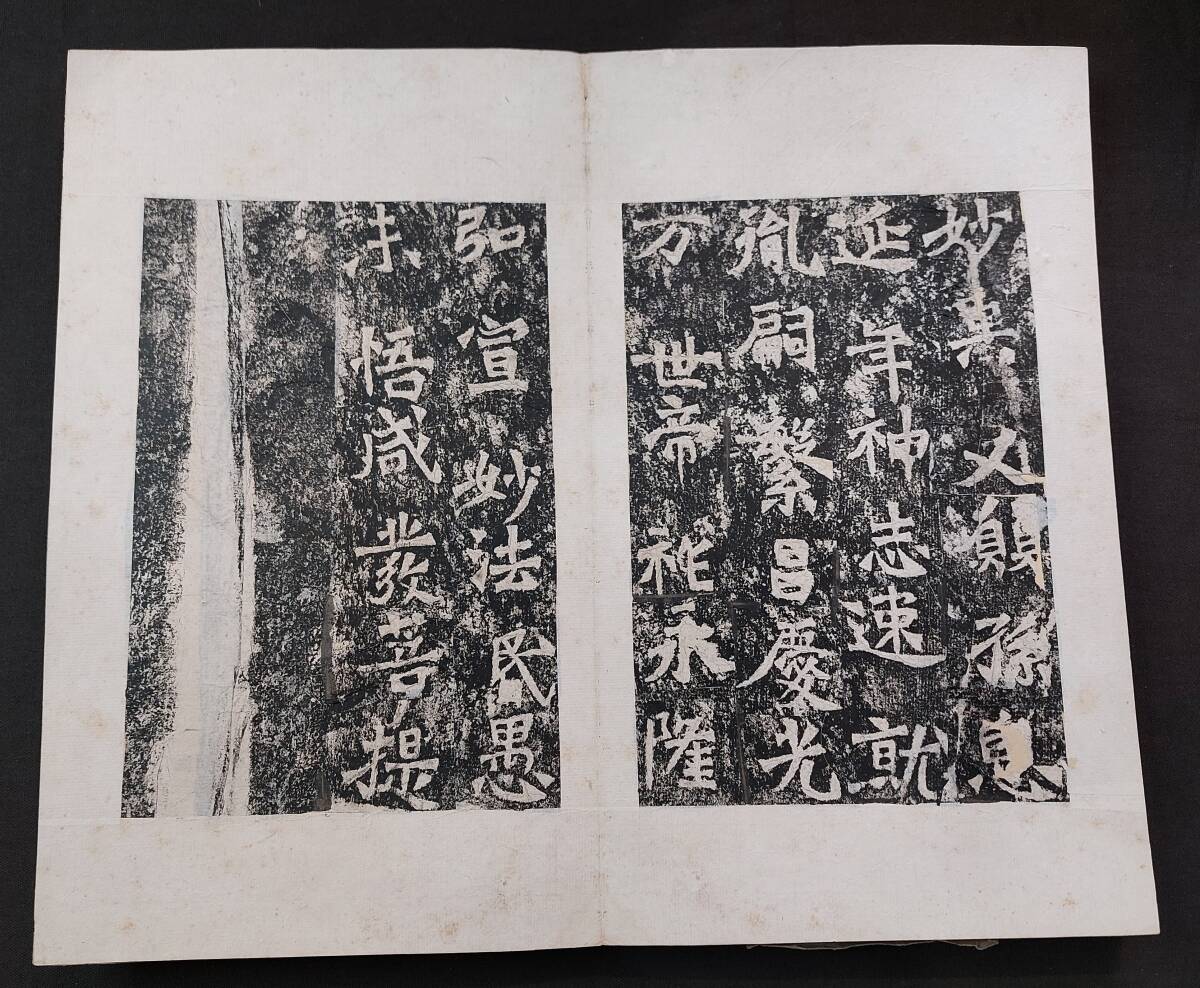 妙果又願孫息
延年神志速就
胤嗣繁昌慶光
万世帝祚永隆
弘宣妙法民愚
未悟咸發菩提